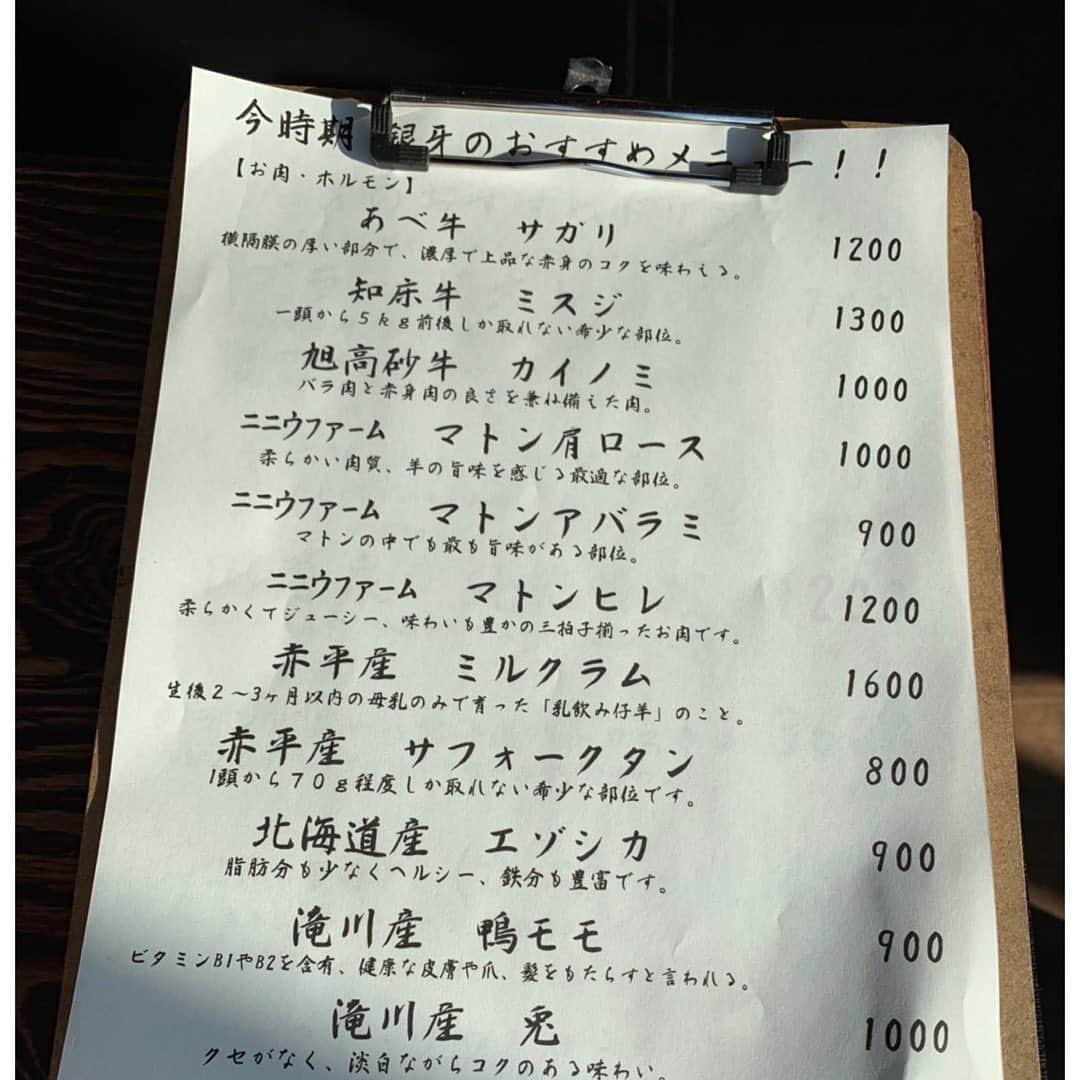 今時期 銀牙のおすすめメニュー！！
【お肉・ホルモン】
あべ牛 サガリ 1200
横隔膜の厚い部分で、濃厚で上品な赤身のコクを味わえる。
知床牛 ミスジ 1300
一頭から5kg前後しか取れない希少な部位。
旭高砂牛 カイノミ 1000
バラ肉と赤身肉の良さを兼ね備えた肉。
ニニウファーム マトン肩ロース 1000
柔らかい肉質、羊の旨味を感じる最適な部位。
ニニウファーム マトンアバラミ 900
マトンの中でも最も旨味がある部位。
ニニウファーム マトンヒレ 1200
柔らかくてジューシー、味わいも豊かの三拍子揃ったお肉です。
赤平産 ミルクラム 1600
生後2～3ヶ月以内の母乳のみで育った「乳飲み仔羊」のこと。
赤平産 サフォークタン 800
1頭から70g程度しか取れない希少な部位です。
北海道産 エゾシカ 900
脂肪分も少なくヘルシー、鉄分も豊富です。
滝川産 鴨モモ 900
ビタミンB1やB2を含有、健康な皮膚や爪、髪をもたらすと言われる。
滝川産 兎 1000
クセがなく、淡白ながらコクのある味わい。